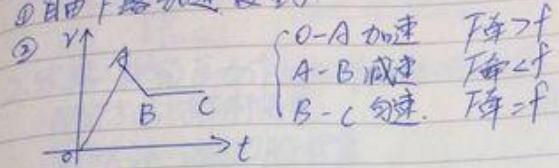 ①自由下落加速
② v
A
B C
0 t
O-A 加速 F牵>f
A-B 减速 F牵<f
B-C 匀速. F牵=f